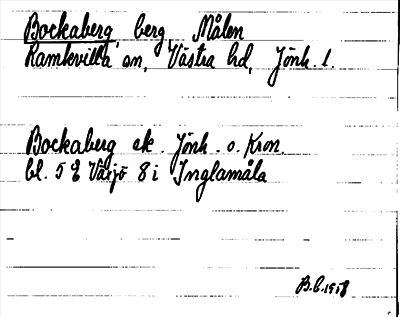 Bockaberg, berg, Målen
Ramkvilla sn, Västra hd, Jönk. l.
Bockaberg ek. Jönk. o. Kron.
bl. 5 Växjö 8 i Inglamåla
B.C. 1958